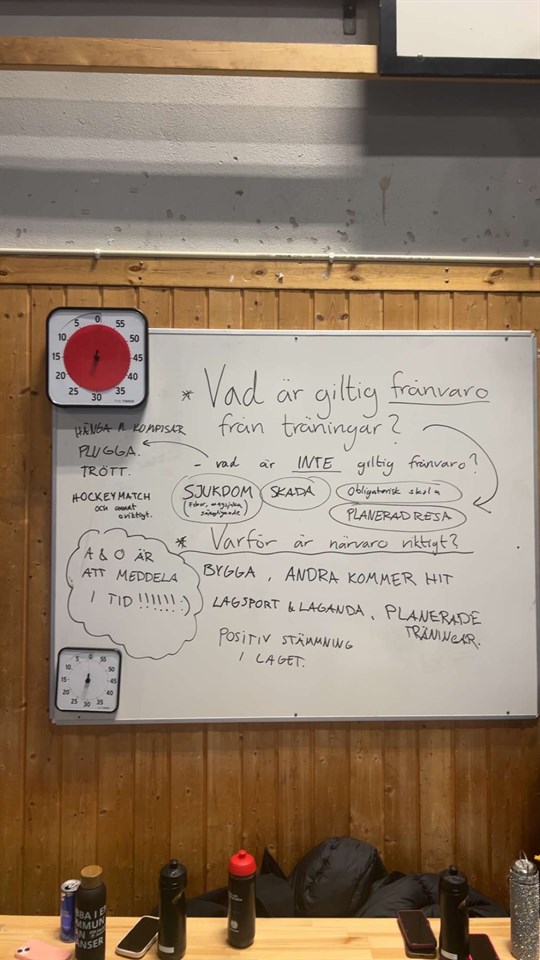 * Vad är giltig frånvaro
från träningar?
- vad är INTE giltig frånvaro?
HÄNGA M KOMPISAR
PLUGGA.
TRÖTT.
HOCKEYMATCH
och annat
oviktigt.
SJUKDOM
Feber, magsjuka,
SKADA
Obligatorisk skola
PLANERAD RESA
* Varför är närvaro viktigt?
BYGGA, ANDRA KOMMER HIT
LAGSPORT & LAGANDA, PLANERADE
TRÄNINGAR.
POSITIV STÄMMNING
I LAGET.
A & O ÄR
ATT MEDDELA
I TID !!!!!! :)
0 55 50 45 40 35 30 25 20 15 10 5
0 55 50 45 40 35 30 25 20 15 10 5